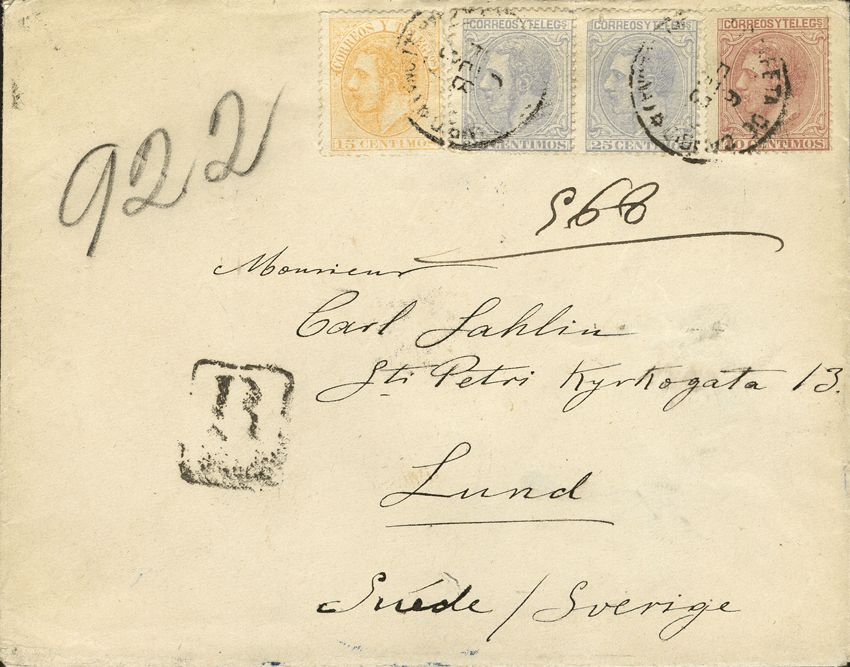 CORREOS Y TELEGS CORREOS Y TELEGS CORREOS Y TELEGS CORREOS Y TELEGS
15 CENTIMOS CENTIMOS 25 CENTIMOS CENTIMOS
922
568
Monsieur
Carl Sahlin
Sti Petri Kyrkogata 13.
R
Lund
Suéde / Sverige